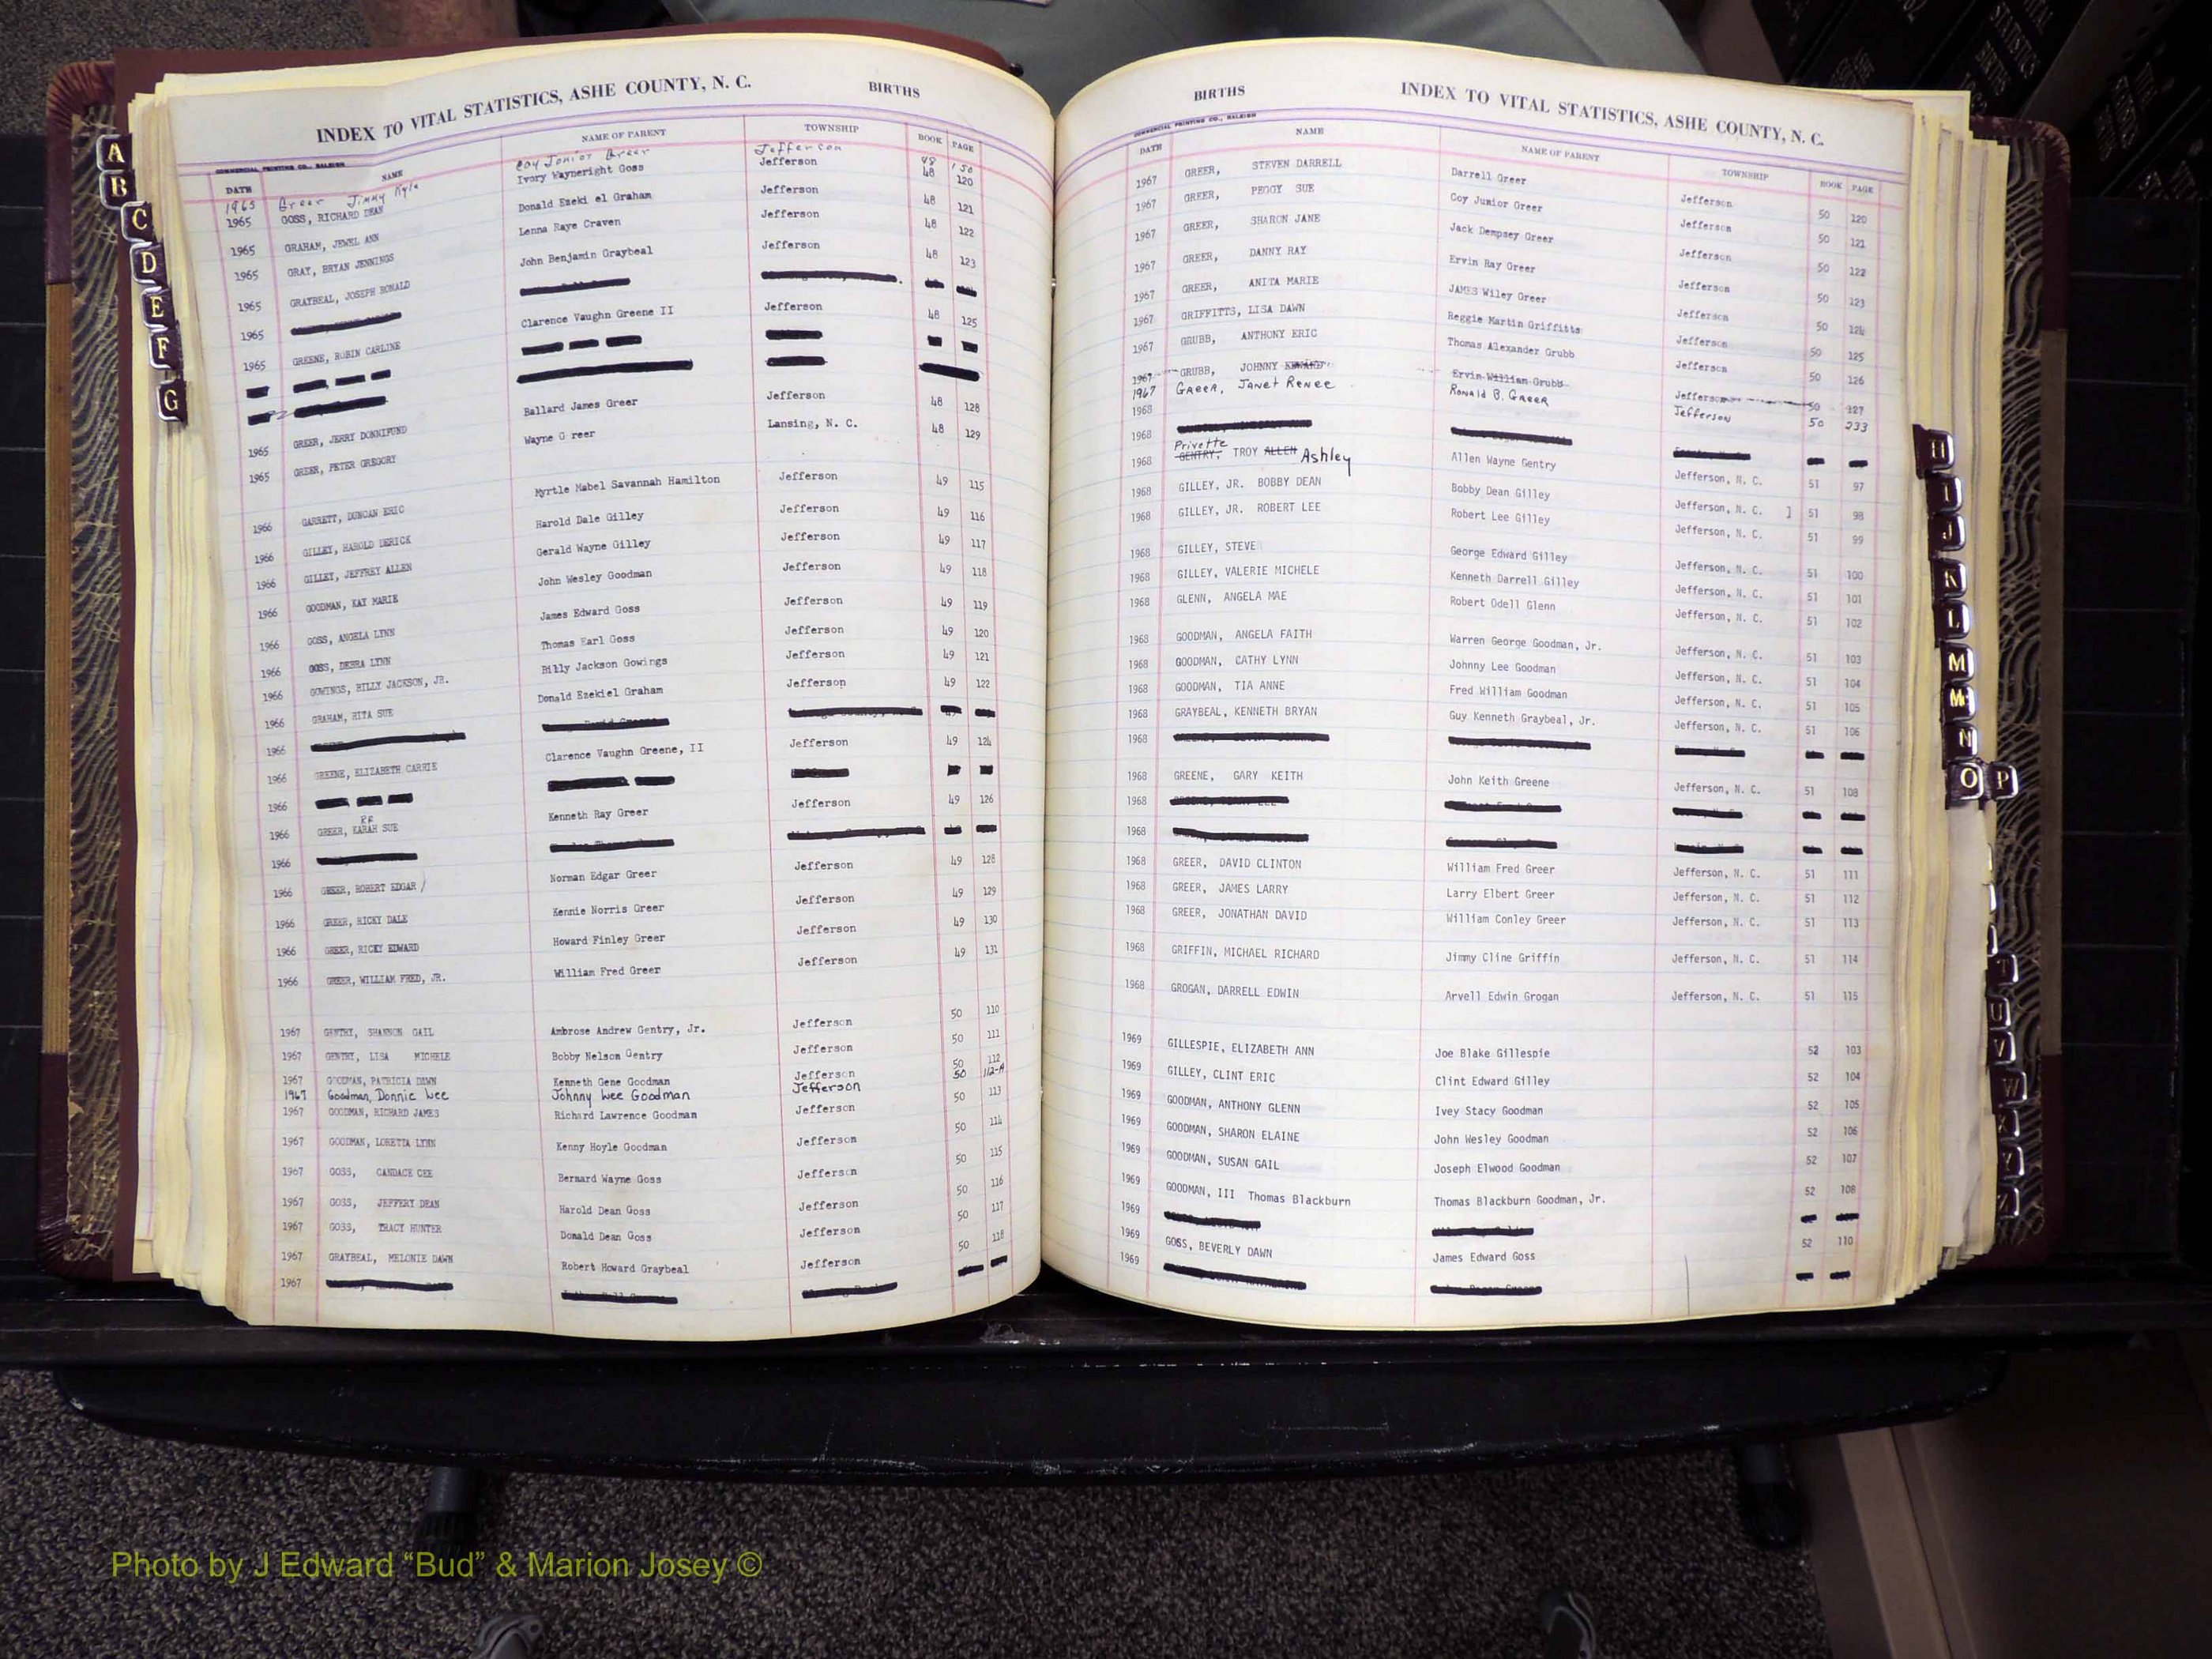 INDEX TO VITAL STATISTICS, ASHE COUNTY, N. C. BIRTHS
COMMERCIAL PRINTING CO., RALEIGH
DATE NAME NAME OF PARENT TOWNSHIP BOOK PAGE
1965 Greer Jimmy Kyle Coy Junior Greer Jefferson 48 150
1965 GOSS, RICHARD DEAN Ivory Wayneright Goss Jefferson 48 120
1965 GRAHAM, JEWEL ANN Donald Ezeki el Graham Jefferson 48 121
1965 GRAY, BRYAN JENNINGS Lenna Raye Craven Jefferson 48 122
1965 GRAYBEAL, JOSEPH RONALD John Benjamin Graybeal Jefferson 48 123
1965
1965 GREENE, ROBIN CARLINE Clarence Vaughn Greene II Jefferson 48 125
1965 GREER, JERRY DONNIFUND Ballard James Greer Jefferson 48 128
1965 GREER, PETER GREGORY Wayne G reer Lansing, N. C. 48 129
1966 GARRETT, DUNCAN ERIC Myrtle Mabel Savannah Hamilton Jefferson 49 115
1966 GILLEY, HAROLD DERICK Harold Dale Gilley Jefferson 49 116
1966 GILLEY, JEFFREY ALLEN Gerald Wayne Gilley Jefferson 49 117
1966 GOODMAN, KAY MARIE John Wesley Goodman Jefferson 49 118
1966 GOSS, ANGELA LYNN James Edward Goss Jefferson 49 119
1966 GOSS, DEBRA LYNN Thomas Earl Goss Jefferson 49 120
1966 GOWINGS, BILLY JACKSON, JR. Billy Jackson Gowings Jefferson 49 121
1966 GRAHAM, RITA SUE Donald Ezekiel Graham Jefferson 49 122
1966
1966 GREENE, ELIZABETH CARRIE Clarence Vaughn Greene, II Jefferson 49 124
1966
1966 GREER, KARAH SUE Kenneth Ray Greer Jefferson 49 126
1966
1966 GREER, ROBERT EDGAR Norman Edgar Greer Jefferson 49 128
1966 GREER, RICKY DALE Kennie Norris Greer Jefferson 49 129
1966 GREER, RICKY EDWARD Howard Finley Greer Jefferson 49 130
1966 GREER, WILLIAM FRED, JR. William Fred Greer Jefferson 49 131
1967 GENTRY, SHANNON GAIL Ambrose Andrew Gentry, Jr. Jefferson 50 110
1967 GENTRY, LISA MICHELE Bobby Nelson Gentry Jefferson 50 111
1967 GOODMAN, PATRICIA DAWN Kenneth Gene Goodman Jefferson 50 112
1967 Goodman, Donnie Lee Johnny Lee Goodman Jefferson 50 112-A
1967 GOODMAN, RICHARD JAMES Richard Lawrence Goodman Jefferson 50 113
1967 GOODMAN, LORETTA LYNN Kenny Hoyle Goodman Jefferson 50 114
1967 GOSS, CANDACE CEE Bernard Wayne Goss Jefferson 50 115
1967 GOSS, JEFFERY DEAN Harold Dean Goss Jefferson 50 116
1967 GOSS, TRACY HUNTER Donald Dean Goss Jefferson 50 117
1967 GRAYBEAL, MELONIE DAWN Robert Howard Graybeal Jefferson 50 118
1967
BIRTHS INDEX TO VITAL STATISTICS, ASHE COUNTY, N. C.
COMMERCIAL PRINTING CO., RALEIGH
DATE NAME NAME OF PARENT TOWNSHIP BOOK PAGE
1967 GREER, STEVEN DARRELL Darrell Greer Jefferson 50 120
1967 GREER, PEGGY SUE Coy Junior Greer Jefferson 50 121
1967 GREER, SHARON JANE Jack Dempsey Greer Jefferson 50 122
1967 GREER, DANNY RAY Ervin Ray Greer Jefferson 50 123
1967 GREER, ANITA MARIE JAMES Wiley Greer Jefferson 50 124
1967 GRIFFITTS, LISA DAWN Reggie Martin Griffitts Jefferson 50 125
1967 GRUBB, ANTHONY ERIC Thomas Alexander Grubb Jefferson 50 126
1967 GRUBB, JOHNNY Ervin William Grubb Jefferson 50 127
1967 GREER, Janet Renee Ronald B. GREER Jefferson 50 233
1968
1968
Privette
1968 GENTRY, TROY ALLEN Ashley Allen Wayne Gentry Jefferson, N. C. 51 97
1968 GILLEY, JR. BOBBY DEAN Bobby Dean Gilley Jefferson, N. C. ] 51 98
1968 GILLEY, JR. ROBERT LEE Robert Lee Gilley Jefferson, N. C. 51 99
1968 GILLEY, STEVE George Edward Gilley Jefferson, N. C. 51 100
1968 GILLEY, VALERIE MICHELE Kenneth Darrell Gilley Jefferson, N. C. 51 101
1968 GLENN, ANGELA MAE Robert Odell Glenn Jefferson, N. C. 51 102
1968 GOODMAN, ANGELA FAITH Warren George Goodman, Jr. Jefferson, N. C. 51 103
1968 GOODMAN, CATHY LYNN Johnny Lee Goodman Jefferson, N. C. 51 104
1968 GOODMAN, TIA ANNE Fred William Goodman Jefferson, N. C. 51 105
1968 GRAYBEAL, KENNETH BRYAN Guy Kenneth Graybeal, Jr. Jefferson, N. C. 51 106
1968
1968 GREENE, GARY KEITH John Keith Greene Jefferson, N. C. 51 108
1968
1968
1968 GREER, DAVID CLINTON William Fred Greer Jefferson, N. C. 51 111
1968 GREER, JAMES LARRY Larry Elbert Greer Jefferson, N. C. 51 112
1968 GREER, JONATHAN DAVID William Conley Greer Jefferson, N. C. 51 113
1968 GRIFFIN, MICHAEL RICHARD Jimmy Cline Griffin Jefferson, N. C. 51 114
1968 GROGAN, DARRELL EDWIN Arvell Edwin Grogan Jefferson, N. C. 51 115
1969 GILLESPIE, ELIZABETH ANN Joe Blake Gillespie 52 103
1969 GILLEY, CLINT ERIC Clint Edward Gilley 52 104
1969 GOODMAN, ANTHONY GLENN Ivey Stacy Goodman 52 105
1969 GOODMAN, SHARON ELAINE John Wesley Goodman 52 106
1969 GOODMAN, SUSAN GAIL Joseph Elwood Goodman 52 107
1969 GOODMAN, III Thomas Blackburn Thomas Blackburn Goodman, Jr. 52 108
1969
1969 GOSS, BEVERLY DAWN James Edward Goss 52 110
1969
A
B
C
D
E
F
G
H
I
J
K
L
M
Mc
N
O P
T
U
V
W
Photo by J Edward “Bud” & Marion Josey ©